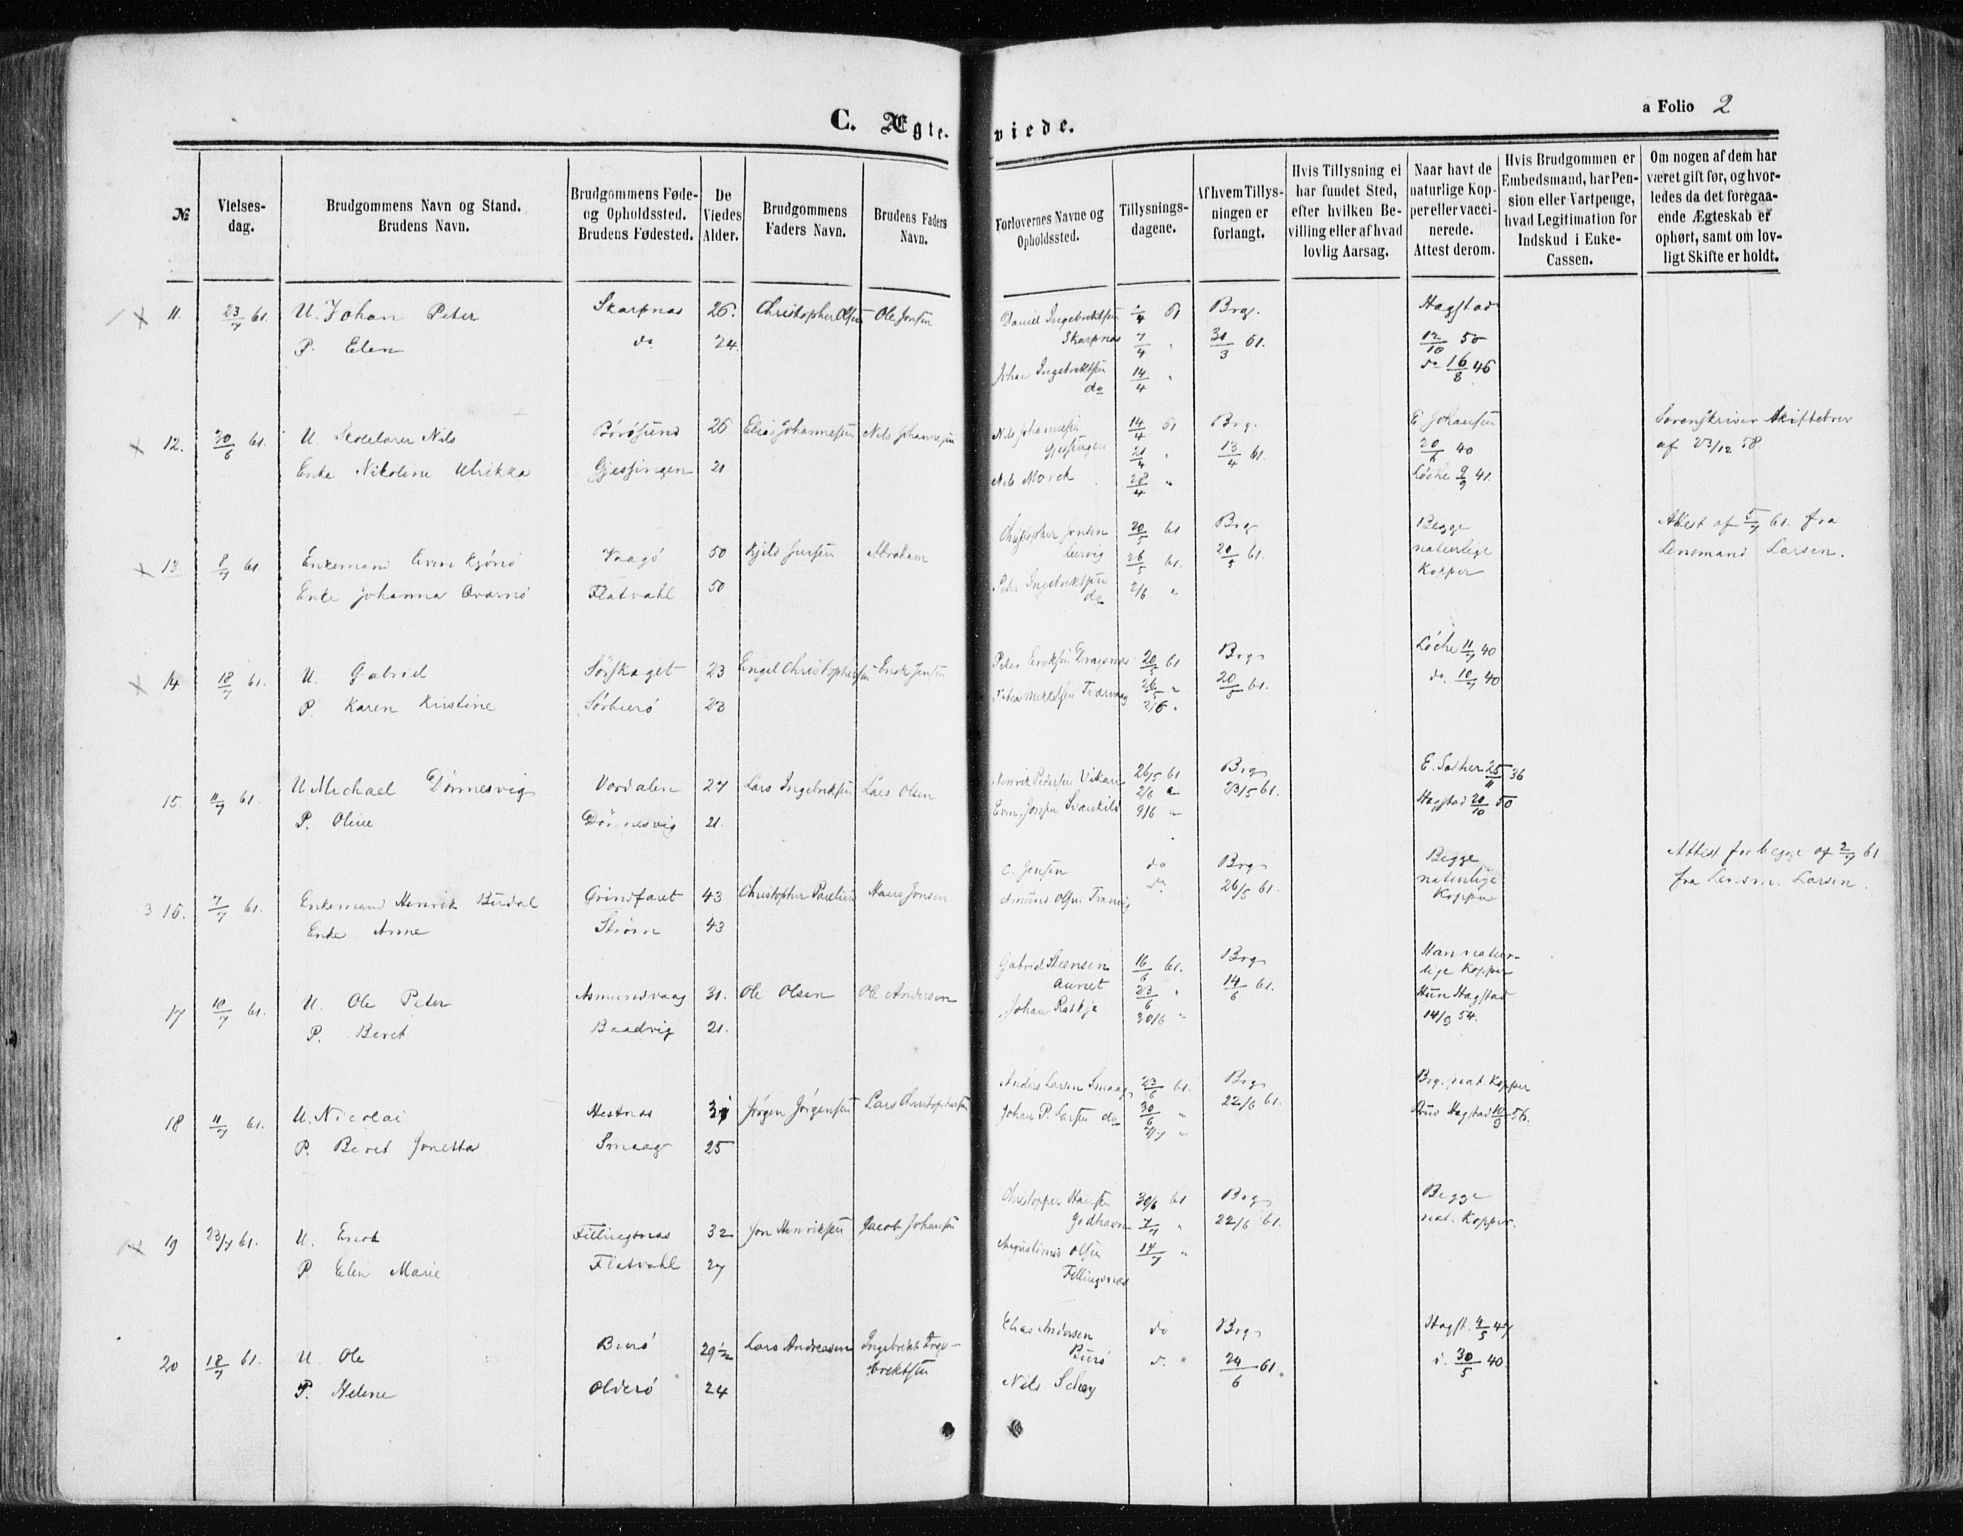 C. Ægte-viede.
a Folio 2
№
Vielses-dag.
Brudgommens Navn og Stand.
Brudens Navn.
Brudgommens Føde-
og Opholdssted.
Brudens Fødested.
De
Viedes
Alder.
Brudgommens
Faders Navn.
Brudens Faders
Navn.
Forlovernes Navne og
Opholdssted.
Tillysnings-
dagene.
Af hvem Tillys-
ningen er
forlangt.
Hvis Tillysning ei
har fundet Sted,
efter hvilken Be-
villing eller af hvad
lovlig Aarsag.
Naar havt de
naturlige Kop-
per eller vacci-
nerede.
Attest derom.
Hvis Brudgommen er
Embedsmand, har Pen-
sion eller Vartpenge,
hvad Legitimation for
Indskud i Enke-
Cassen.
Om nogen af dem har
været gift før, og hvor-
ledes da det foregaa-
ende Ægteskab er
ophørt, samt om lov-
ligt Skifte er holdt.
11. 23/7 61. U. Johan Peter Skarpnas 26. Christopher Olsen Ole Jonsen
P. Elen do 24.
Daniel Ingebrektsen Brg. Hagstad
Skarpnas 7/4 " 30/3 61. 12/10 50
Johan Ingebrektsen 14/4 " do 16/8 46
do
12. 30/6 61. U. Skolelærer Nils Børøsund 26 Elias Johannesen Nils Johannesen
Enke Nikoline Ulrikka Gjessingen 21
Nils Johannesen 14/4 61 Brg. E. Johansen Sorenskriver Skiftebrev
Gjessingen 21/4 " 13/4 61. 20/6 40 af 23/12 58.
Nils Morck 28/4 " Løche 9/9 41.
13 8/7 61 Enkemand Even Kjønø Vaagø 50 Kjels Jensen Abraham
Enke Johanna Qvarnø Flatvahl 50
Christopher Jonsen 20/5 61 Brg Begge Attest af 5/7 61. fra
Lervig 26/5 61. 20/5 61. naturlige Lensmand Larsen.
Peter Ingebrektsen 2/6 " Kopper
do
14 18/7 61. U. Gabriel Sørskaget 23 Engel Christophersen Erik Jensen
P. Karen Kristine Sørbuerø 23
Peter Eriksen Dragsnes 20/5 61 Brg. Løche 11/7 40
Mikkelsen Tvervaag 26/5 " 20/5 61. do. 10/7 40
2/6 "
15. 61. U Michael Dønnesvig Vordalen 27 Lars Ingebriksen Lars Olsen
P. Oline Dønnesvig 21.
Henrik Pedersen Vikan 26/5 61 Brg. E. Sather 25/11 36
2/6 " 23/5 61.
Even Jonsen 9/6 " Hagstad 20/10 50
16. 7/7 61. Enkemand Henrik Budal Grindfaret 43 Christopher Paulsen Hans Jonsen
Enke Anne Strøm 43
C. Jensen do Brg. Begge Attest for begge af 2/7 61
Amund Olsen do 26/5 61. naturlige fra Lensm. Larsen.
Kopper
17 10/7 61. U. Ole Peter Asmundvaag 31. Ole Olsen Ole Andersen
P. Beret Baadvig 21.
Gabriel Steensen 16/6 61. Brg. Han natur-
Aunet 23/6 " 14/6 61. lige Kopper
Johan Raskje 30/6 " Hun Hagstad
14/9 54.
18 11/7 61. U. Nicolai Hestnas 31 Jørgen Jørgensen Lars Christophersen
P. Beret Jonetta Smaag 25
Anders Larsen Smaag 23/6 61. Brg. Brg. nat. Kopper
Johan P. Larsen do 30/6 " 22/6 61. Brud Hagstad 10/9 56.
7/7 "
19 23/7 61. U. Erik Fillingsnas 32 Jon Henriksen Jacob Johansen
P. Elen Marie Flatvahl 27
Christopher Hansen 30/6 61 Brg. Begge
Godhavn 7/7 " 22/6 61. nat. Kopper.
Augustinus Olsen 14/7 "
Fillingsnas
20 18/7 61. U. Ole Buerø 29½ Lars Andreasen Ingebrikt Inge-
brektsen
P. Helene Olderø 24
Elias Andersen do Brg. Hagst. 4/5 47
Buerø do. 24/6 61. d. 30/5 40
Nils Schey